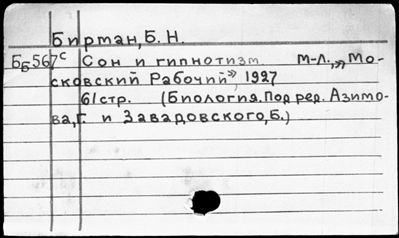 Бирман, Б. Н.
Бб567с Сон и гипнотизм М-Л., „Мо-
сковский Рабочий”, 1927
61стр. (Биология. Под ред. Азимо-
ва, Г и Завадовского, Б.)